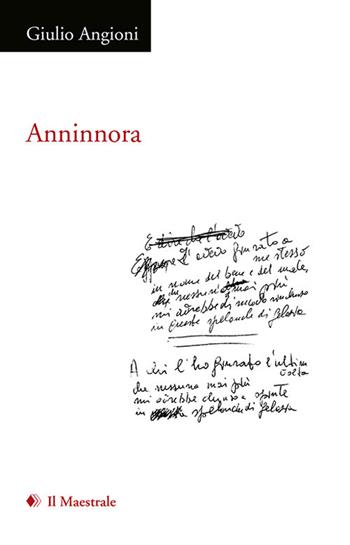 Giulio Angioni
Anninnora
E dire che l'avevo
Eppure l'avevo giurato a
me stesso
in nome del bene e del male,
che nessuno mai più
mi avrebbe di nuovo rinchiuso
in queste spelonche di gelosia
A chi l'ho giurato l'ultima
volta
che nessuno mai più
mi avrebbe chiuso a
in spelonche di gelosia
Il Maestrale